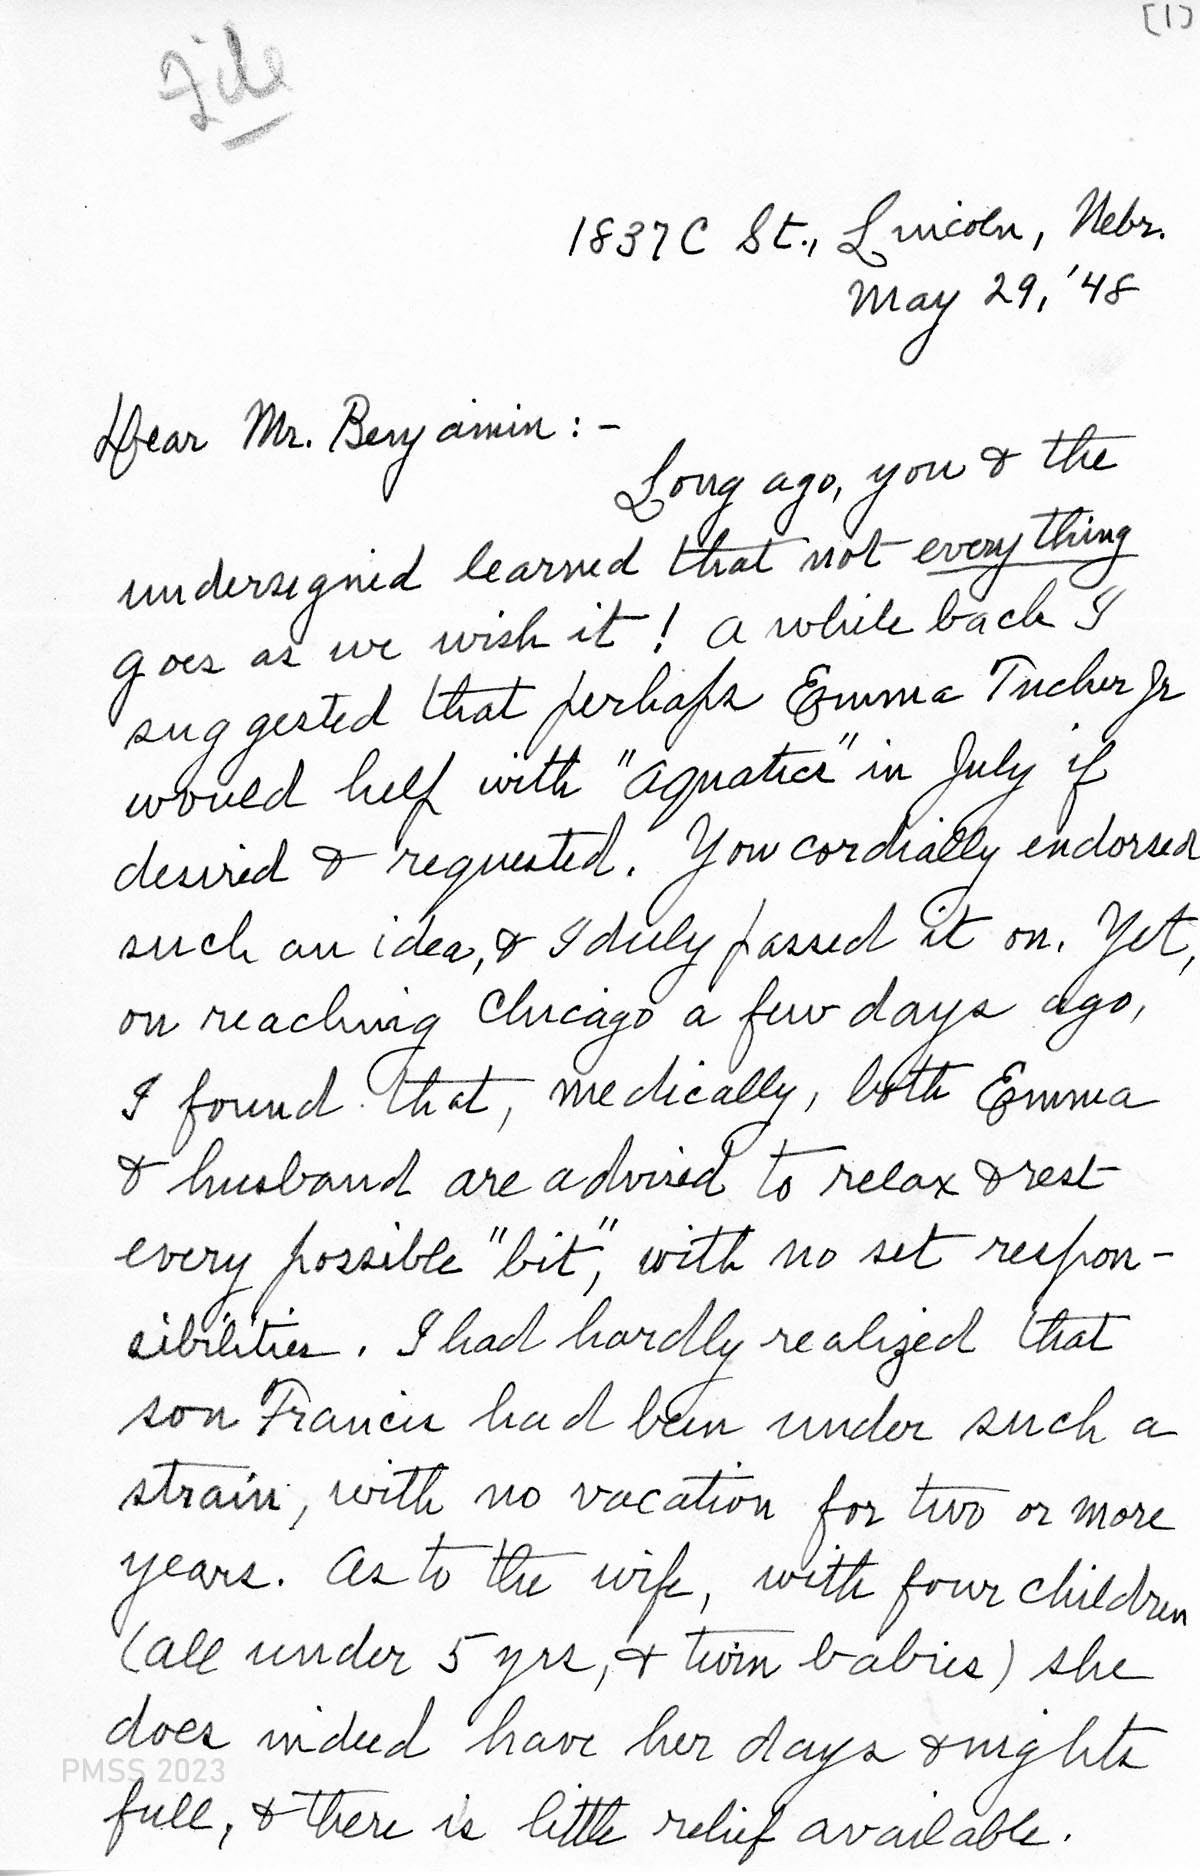 [1]
File
1837 C St., Lincoln, Nebr.
May 29, '48
Dear Mr. Benjamin:-
Long ago, you & the
undersigned learned that not everything
goes as we wish it! A while back I
suggested that perhaps Emma Tucker Jr
would help with "aquatics" in July if
desired & requested. You cordially endorsed
such an idea, & I duly passed it on. Yet,
on reaching Chicago a few days ago,
I found that, medically, both Emma
& husband are advised to relax & rest
every possible "bit", with no set respon-
sibilities. I had hardly realized that
son Francis had been under such a
strain, with no vacation for two or more
years. As to the wife, with four children
(all under 5 yrs, & twin babies) she
does indeed have her days & nights
full, & there is little relief available.
PMSS 2023